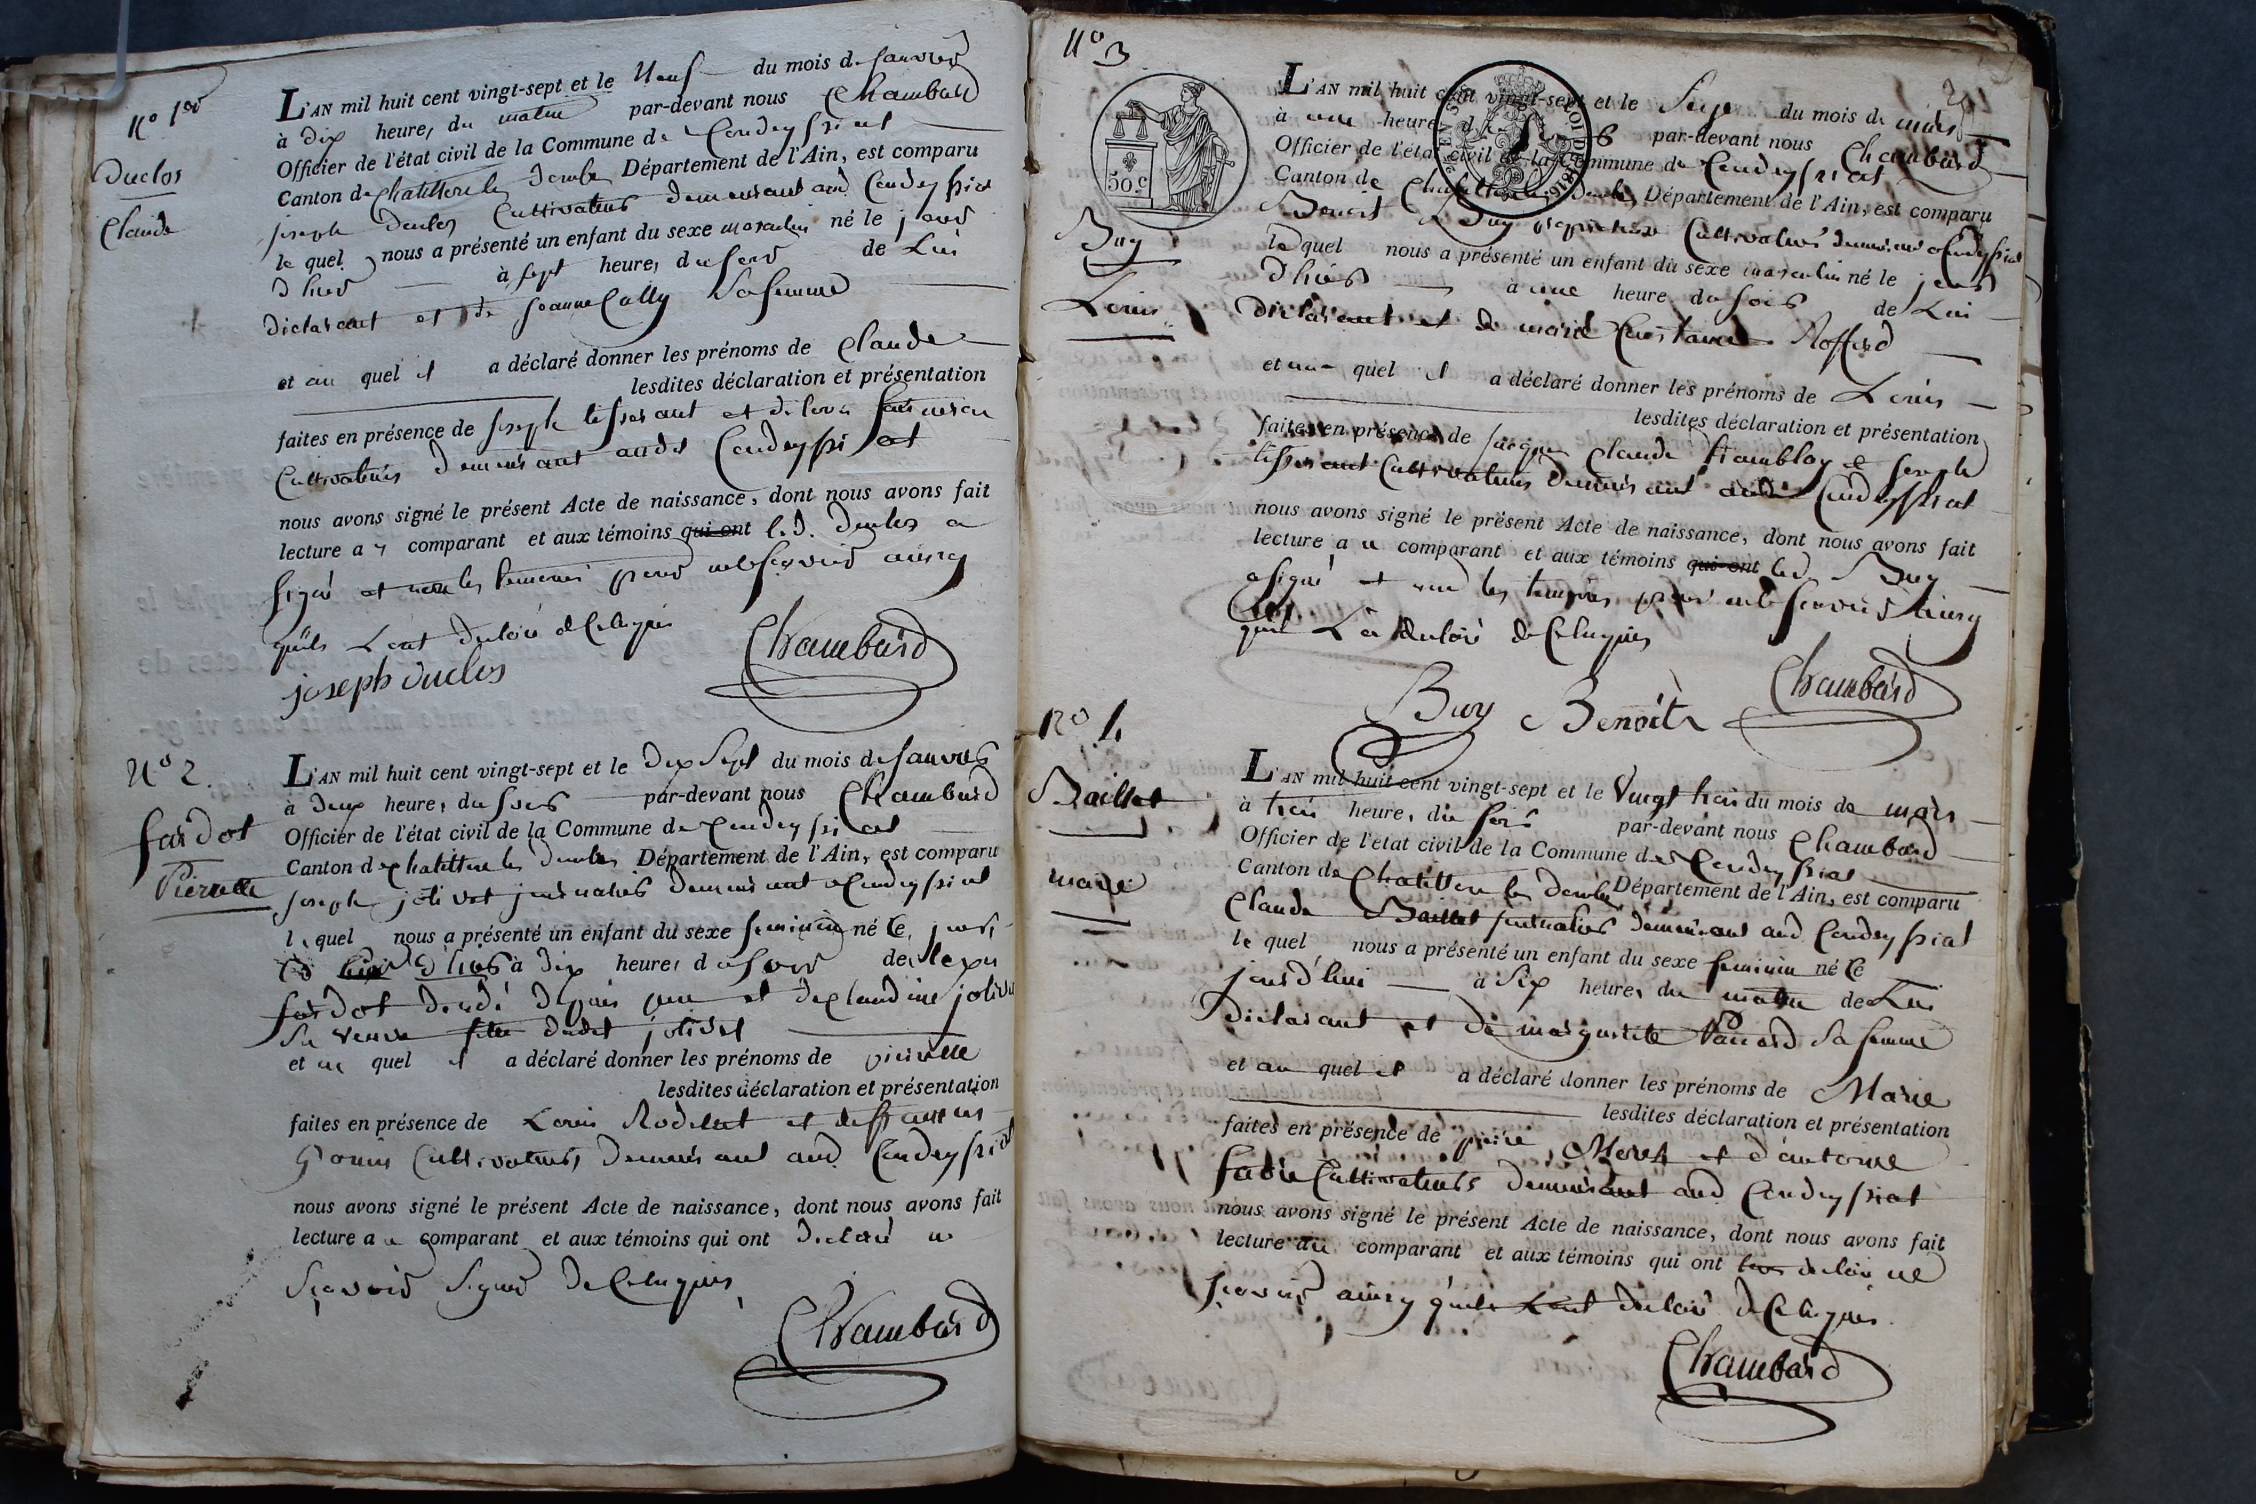 N° 1er
Duclos
Claude
L'AN mil huit cent vingt-sept et le Neuf du mois de janvier
à dix heures du matin par-devant nous Chambard
Officier de l'état civil de la Commune de Condeyssiat
Canton de Chatillon les Dombes Département de l'Ain, est comparu
joseph duclos Cultivateur demeurant aud Condeyssiat
le quel nous a présenté un enfant du sexe masculin né le jour
d'hier à sept heures du soir de Lui
déclarant et de jeanne Cally Sa femme
et au quel il a déclaré donner les prénoms de Claude
lesdites déclaration et présentation
faites en présence de joseph tisserant et de
Cultivateurs demeurant audit Condeyssiat
nous avons signé le présent Acte de naissance, dont nous avons fait
lecture au comparant et aux témoins qui ont l.d. duclos a
signé et non les temoins pour ne Scavoir ainsy
quils Lont declaré de Ce Requis
joseph duclos
Chambard
N° 2.
fardot
Pierrette
L'AN mil huit cent vingt-sept et le dix Sept du mois de janvier
à deux heures du soir par-devant nous Chambard
Officier de l'état civil de la Commune de Condeyssiat
Canton de Chatillon les Dombes Département de l'Ain, est comparu
joseph jolivet journalier demeurant a Condeyssiat
le quel nous a présenté un enfant du sexe feminin né le jour
d'hier à dix heures du soir de
fardot decedé depuis peu et de Claudine jolivet
Sa veuve fille dudit jolivet
et au quel il a déclaré donner les prénoms de pierrette
lesdites déclaration et présentation
faites en présence de Louis Rodet et de francois
Cultivateurs demeurant aud Condeyssiat
nous avons signé le présent Acte de naissance, dont nous avons fait
lecture au comparant et aux témoins qui ont declaré ne
Scavoir Signer de Ce Requis
Chambard
N° 3
50.c
Buy
Louis
L'AN mil huit cent vingt-sept et le Seize du mois de mars
à une heure du soir par-devant nous Chambard
Officier de l'état civil de la Commune de Condeyssiat
Canton de Chatillon les Dombes Département de l'Ain, est comparu
Benoit Buy proprietaire Cultivateur demeurant a Condeyssiat
le quel nous a présenté un enfant du sexe masculin né le jour
d'hier à une heure du soir de Lui
déclarant et de marie
et au quel il a déclaré donner les prénoms de Louis
lesdites déclaration et présentation
faites en présence de jacque Claude tramblay et joseph
tisserant Cultivateurs demeurant audit Condeyssiat
nous avons signé le présent Acte de naissance, dont nous avons fait
lecture au comparant et aux témoins qui ont led. Buy
a signé et non les temoins pour ne Scavoir ainsy
quil La declaré de Ce Requis
Buy Benoit
Chambard
N° 4
Baillet
marie
L'AN mil huit cent vingt-sept et le Vingt trois du mois de mars
à trois heures du soir par-devant nous Chambard
Officier de l'état civil de la Commune de Condeyssiat
Canton de Chatillon les Dombes Département de l'Ain, est comparu
Claude Baillet journalier demeurant aud Condeyssiat
le quel nous a présenté un enfant du sexe feminin né Ce
jourd'hui à Six heures du matin de Lui
déclarant et de marguerite Pauard Sa femme
et au quel il a déclaré donner les prénoms de Marie
lesdites déclaration et présentation
faites en présence de pierre Morel et d'antoine
fabre Cultivateurs demeurant aud Condeyssiat
nous avons signé le présent Acte de naissance, dont nous avons fait
lecture au comparant et aux témoins qui ont declaré ne
Scavoir ainsy quils Lont declaré de Ce Requis.
Chambard